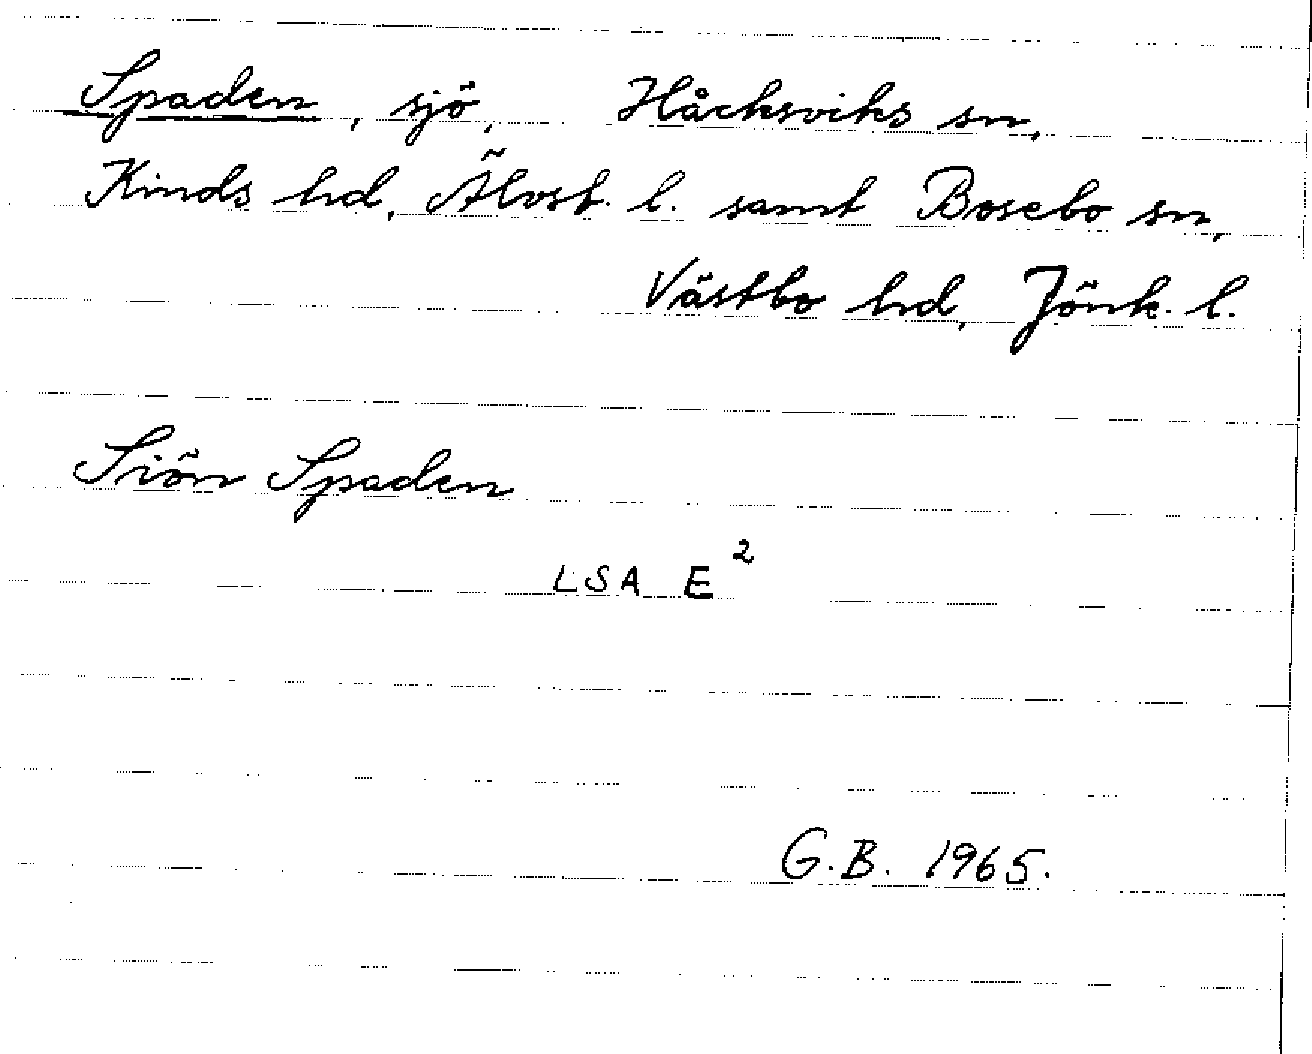 Spaden, sjö, Håcksviks sn,
Kinds hd, Älvsb. l. samt Bosebo sn,
Västbo hd, Jönk. l.
Siön Spaden
LSA E²
G.B. 1965.